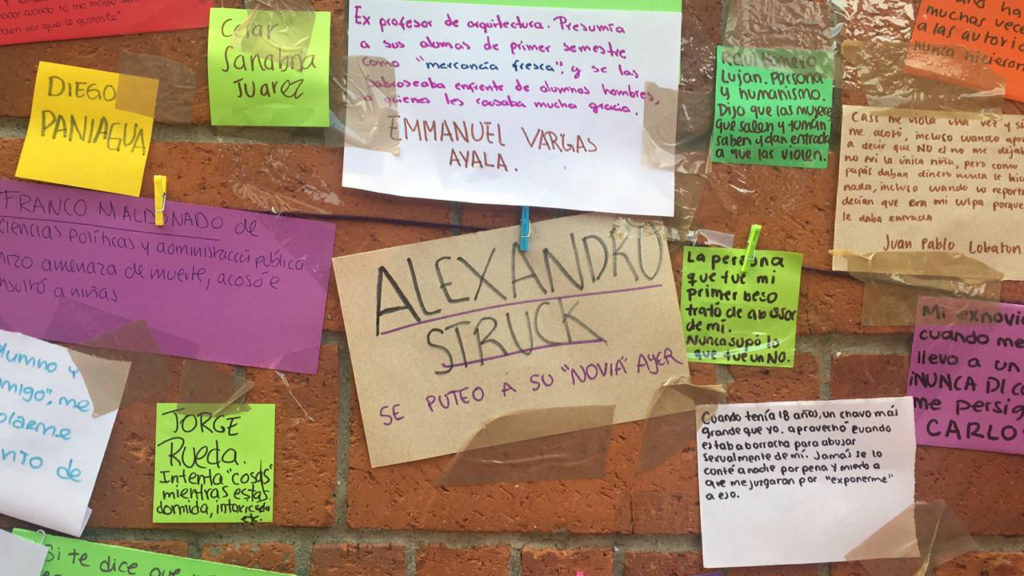 cuando
por que le gustaba"
Cesar
Sanabria
Juarez
DIEGO
PANIAGUA
Ex profesor de arquitectura. Presumía
a sus alumnas de primer semestre
como "mercancía fresca", y se las
enfrente de alumnos hombres,
a quienes les causaba mucha gracia.
EMMANUEL VARGAS
AYALA.
Lujan. Persona
y humanismo.
Dijo que las mujeres
que salen y toman
saben y dan entrada
a que las violen.
muchas vece
a las autorid
nunca hicieron
Casi me viola una vez y si
me acosó, incluso cuando
decir que NO él no me dejab
no fui la única niña, pero como
papás daban dinero nunca se
nada, incluso cuando lo report
decían que era mi culpa porque
le daba entrada
Juan Pablo Lobaton
FRANCO MALDONADO de
ciencias Políticas y administración pública
hizo amenaza de muerte, acosó e
insultó a niñas.
ALEXANDRO
STRUCK
SE PUTEO A SU "NOVIA" AYER
La persona
que fue mi
primer beso
trató de abusar
de mí.
Nunca supo lo
que fue un NO.
Mi exnovio
cuando me
llevo a un
¡NUNCA DI CO
me persig
CARLO
alumno y
amigo", me
violarme
nto de
JORGE
Rueda.
Intenta "cosas"
mientras estas
dormida, intoxicada
etc.
Cuando tenía 18 años, un chavo más
grande que yo, aprovechó cuando
estaba borracha para abusar
sexualmente de mi. Jamás se lo
conté a nadie por pena y miedo a
que me juzgaran por "exponerme"
a eso.
Si te dice que